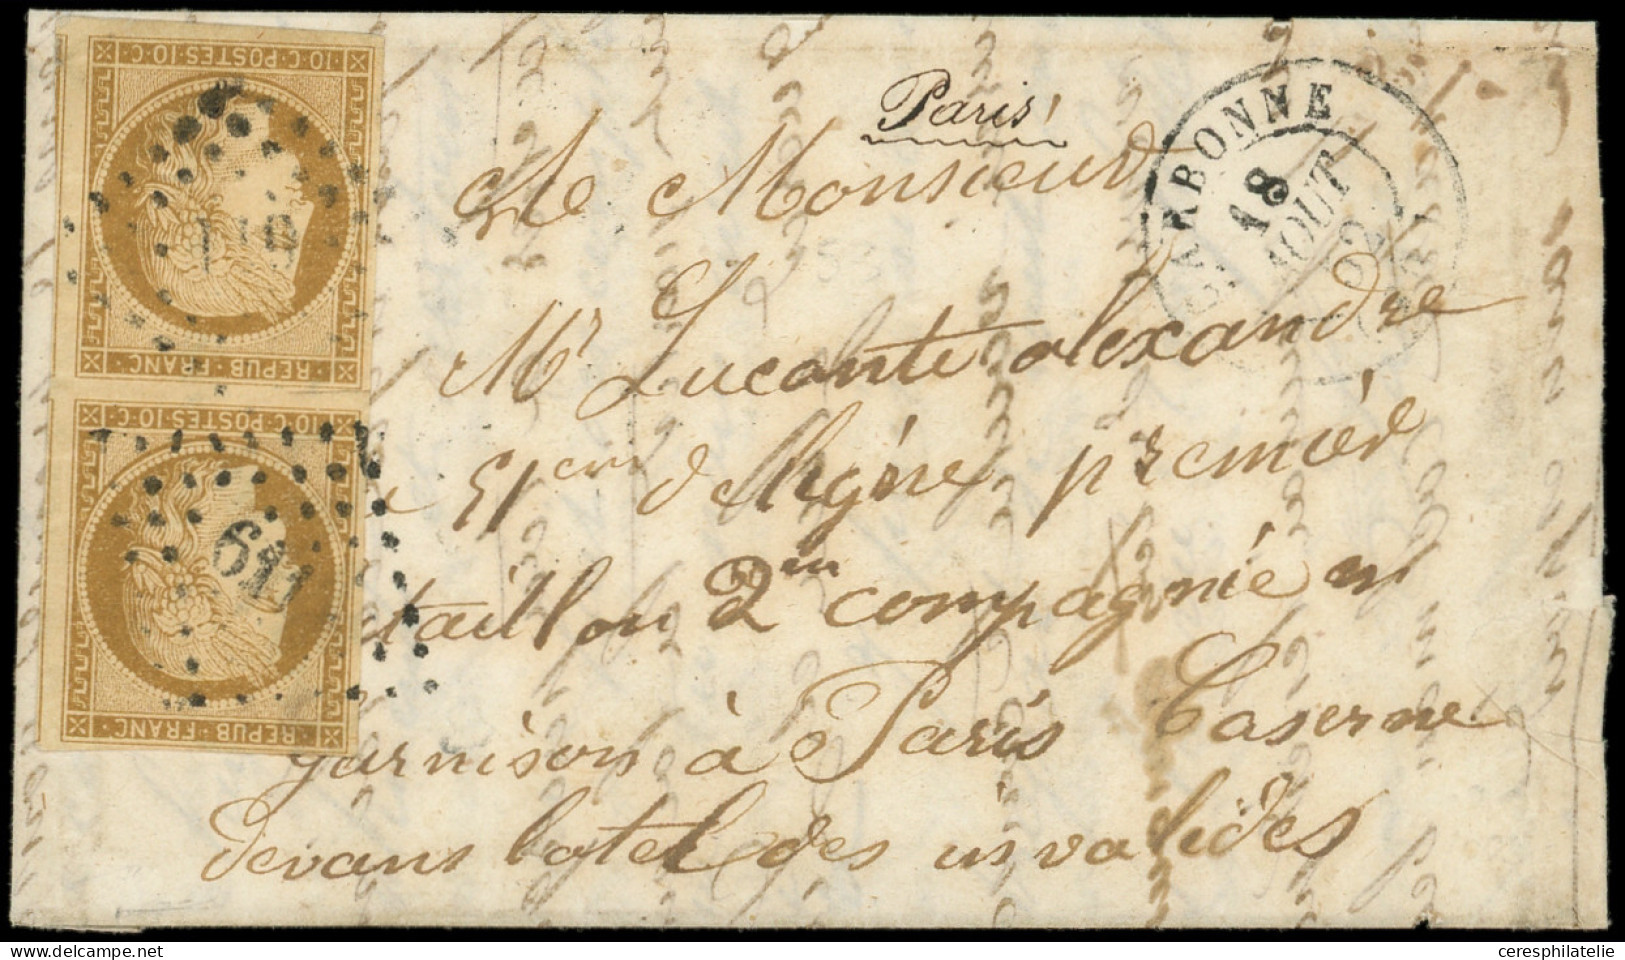 10·C·POSTES·10·C
REPUB·FRANC
10·C·POSTES·10·C
REPUB·FRANC
611
Paris
NARBONNE
18
AOUT
52
Monsieur
Mr Luconte alexandre
51 eme de ligne premier
taillon 2me compagnie en
garnison à Paris Caserne
devans lotel des invalides
ceresphilatelie